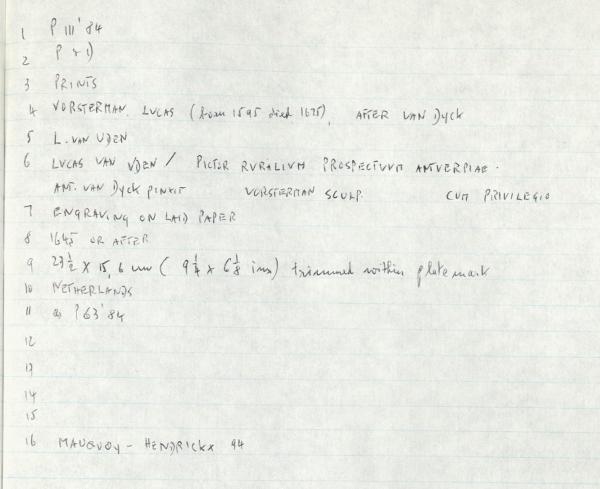 1 P III' 84
2 P
3 PRINTS
4 VORSTERMAN. LUCAS (born 1595 died 1675), AFTER VAN DYCK
5 L. VAN UDEN
6 LUCAS VAN VDEN / PICTOR RVRALIVM PROSPECTVVM ANTVERPIAE.
ANT. VAN DYCK PINXIT VORSTERMAN SCULP. CUM PRIVILEGIO
7 ENGRAVING ON LAID PAPER
8 1645 OR AFTER
9 23½ X 15,6 cm ( 9¼ x 6⅛ ins) trimmed within plate mark
10 NETHERLANDS
11 63' 84
12
13
14
15
16 MAUQUOY - HENDRICKX 94